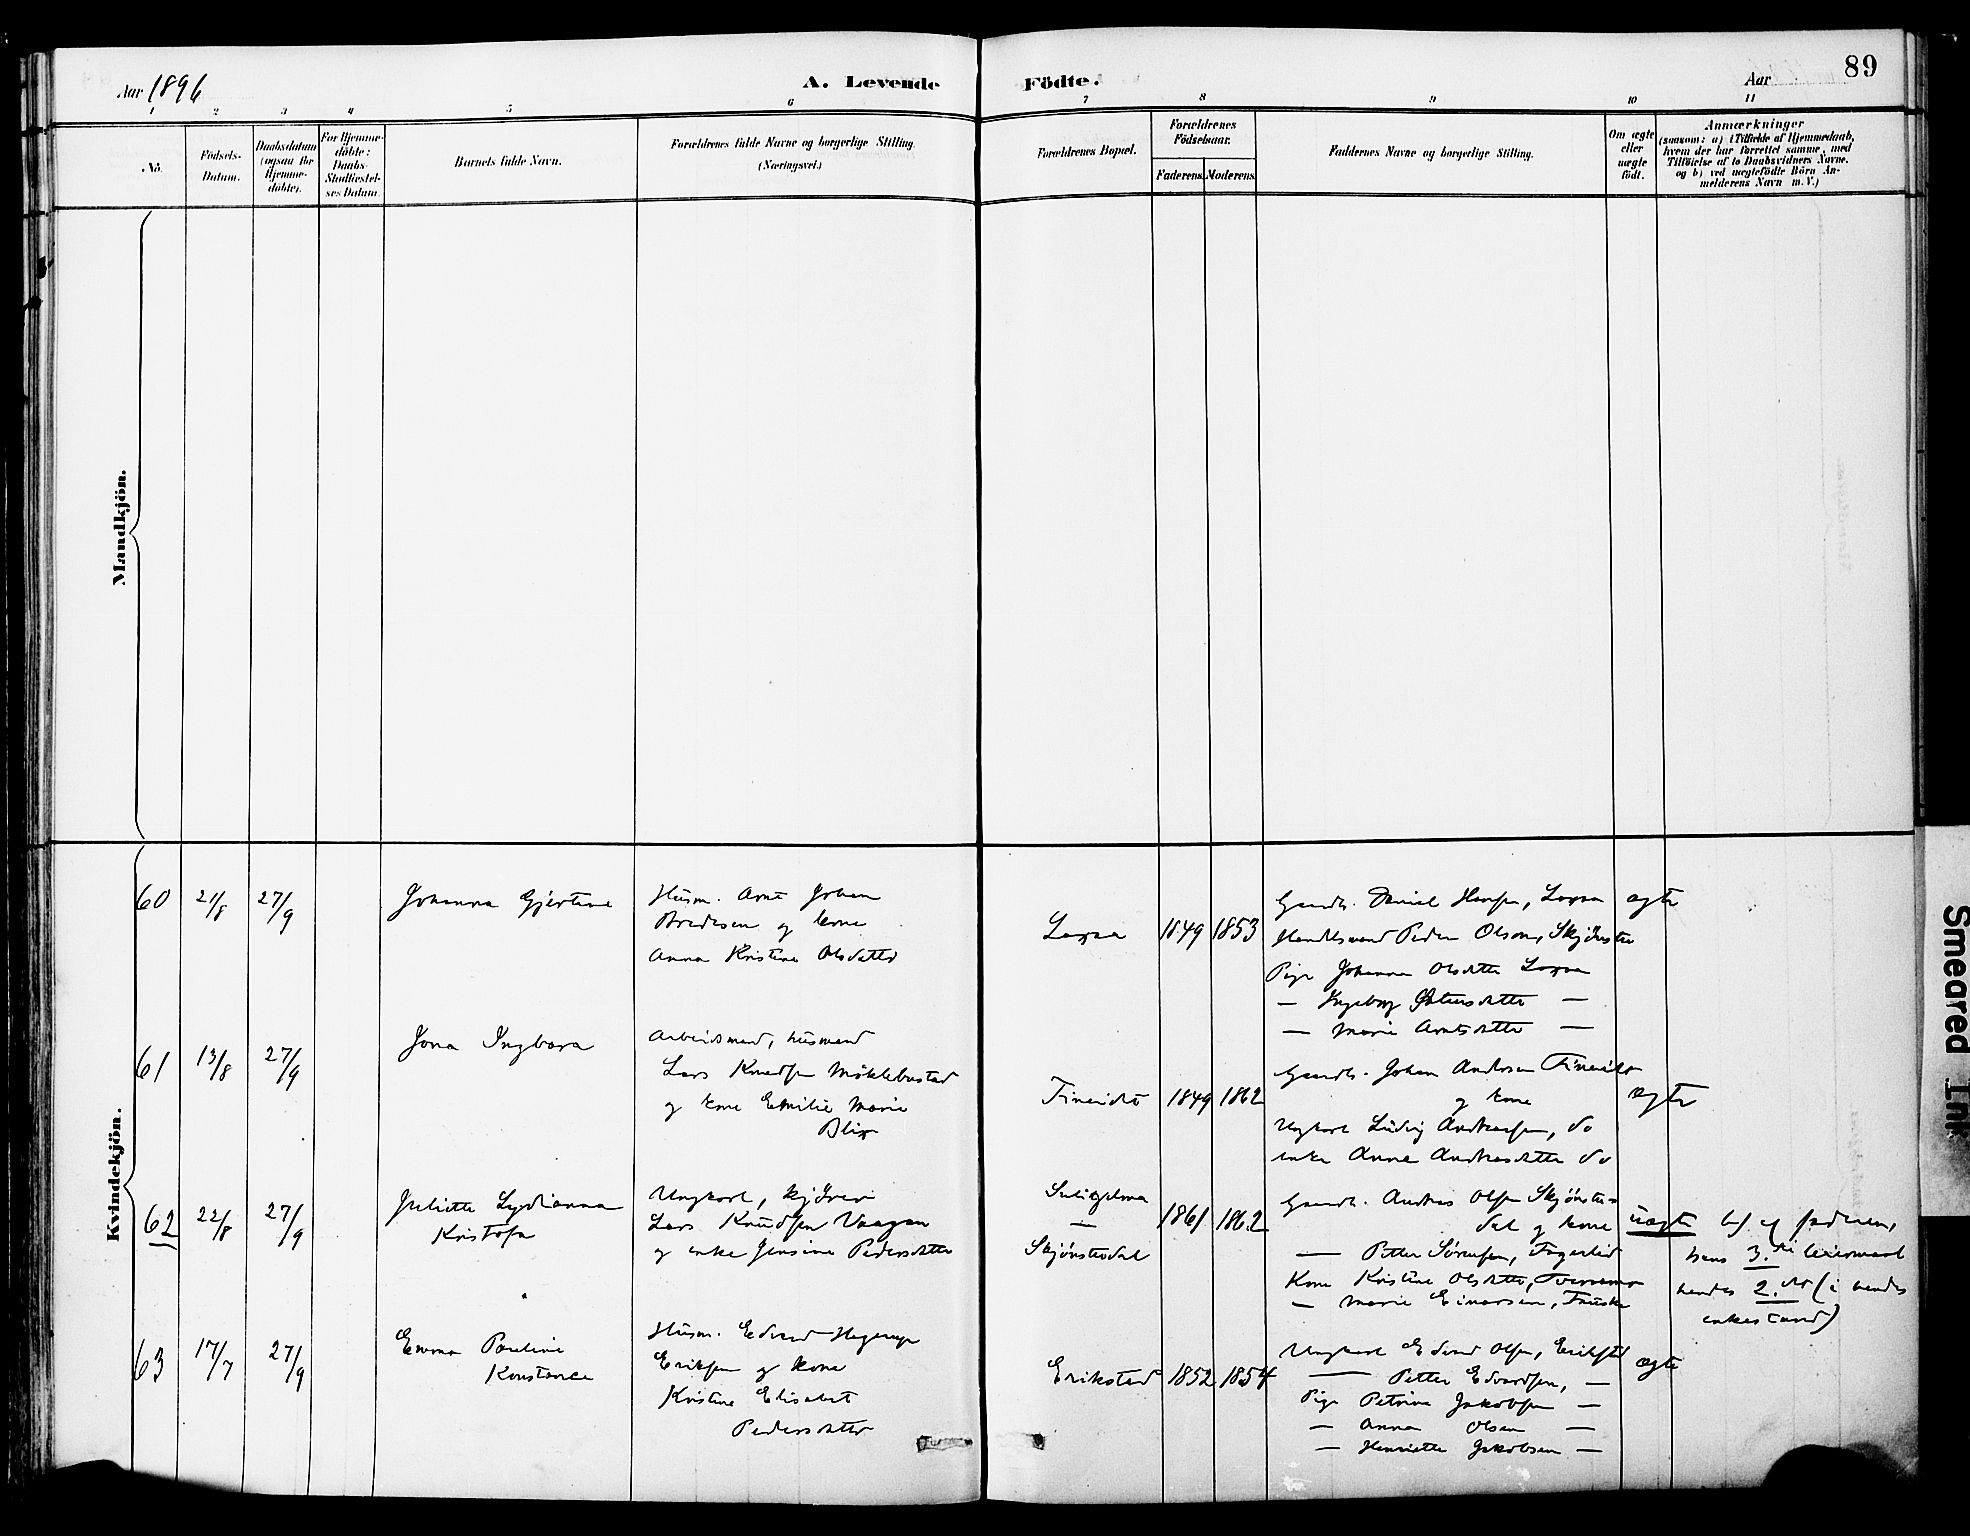 Aar 1896
A. Levende
Födte.
Aar
89
1 2 3 4 5 6 7 8 9 10 11
No.
Födsels-
Datum.
Daabsdatum
(ogsaa for
Hjemme-
döbte).
For Hjemme-
döbte:
Daabs-
Stadfæstel-
ses Datum.
Barnets fulde Navn.
Forældrenes fulde Navne og borgerlige Stilling.
(Næringsvei.)
Forældrenes Bopæl.
Forældrenes
Födselsaar.
Faderens.
Moderens.
Faddernes Navne og borgerlige Stilling.
Om ægte
eller
uægte
födt.
Anmærkninger
(saasom: a) i Tilfælde af Hjemmedaab,
hvem der har forrettet samme, med
Tilföielse af to Daabsvidners Navne,
og b) ved uægtefödte Börn An-
melderens Navn m. V.)
Mandkjön.
Kvindekjön.
60 21/8 27/9
Johanna Gjertine
Husm. Arnt Johan
Bredesen og kone
Anna Kristine Olsdatter
Laxaa 1849 1853
Gaardb. Daniel Hansen, Laxaa
Handelsmand Peder Olsen, Skjönstu
Pige Johanna Olsdatter Laxaa
— Ingeborg —
— Marie Arntsdatter —
ægte
61 13/8 27/9
Jona Ingbora
Arbeidsmand, husmand
Lars Knudsen Möklebustad
og kone Emilie Marie
Blix
Fineidet 1849 1862
Gaardb. Johan Andersen Fineidet
og kone
Ungkarl Ludvig Andreasen, do
enke Anne Andreasdatter do
ægte
62 22/8 27/9
Juliette Lydianna
Kristofa
Ungkarl,
Lars Knudsen Vaagan
og enke Jensine Pedersdatter
Sulitjelma
—
Skjönstudal
1861 1862
Gaardb. Andreas Olsen Skjönstu-
dal og kone
— Petter Sörensen, Fagerlid
Kone Kristine Olsdatter, Tverraamo
— Marie Einarsen, Fauske
uægte
faderen,
hans 3.die leiermaal
hendes 2.det (i hendes
enkestand)
63 17/7 27/9
Emma Pauline
Konstance
Husm. Edvard Hagerup
Eriksen og kone
Kristine Elisabet
Pedersdatter
Erikstad 1852 1854
Ungkarl Edvard Olsen, Erikstad
— Petter Edvardsen, —
Pige Petrine Jakobsen —
— Anna Olsen —
— Henriette Jakobsen —
ægte
Smeared Ink